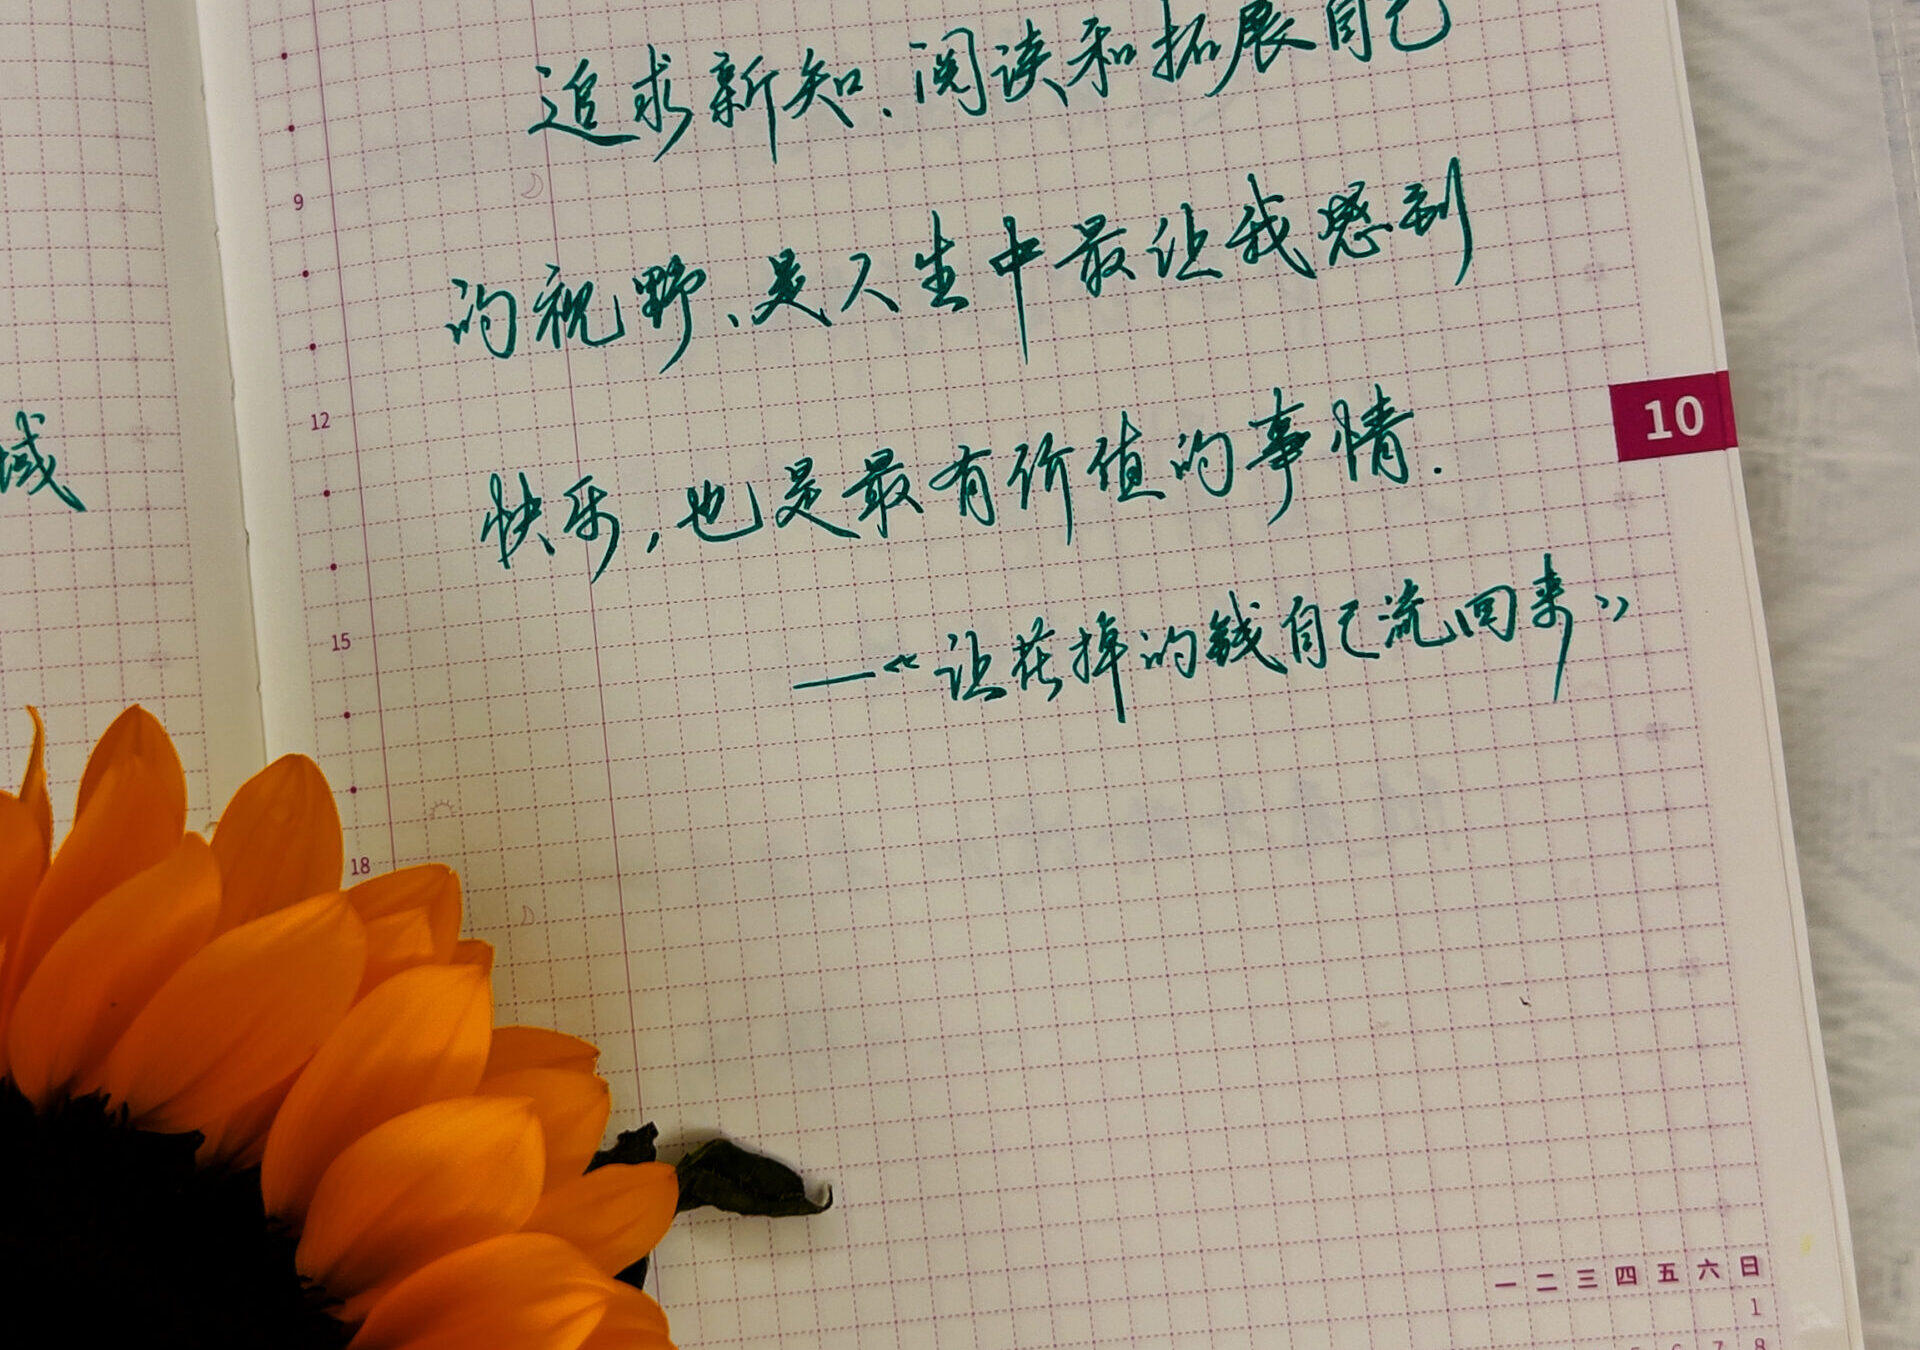 追求新知、阅读和拓展自己
的视野、是人生中最让我感到
快乐，也是最有价值的事情.
—《让花掉的钱自己流回来》
域
9
12
15
18
10
一 二 三 四 五 六 日
1
7 8